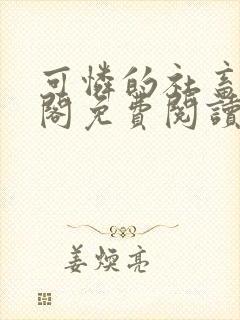 可憐的社畜
閣免費閱讀
姜煥亮